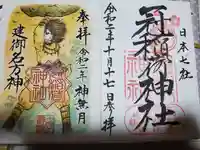 日本七社
冠稲荷神社
令和二年十月十七日参拝
奉拝
令和二年 神無月
建御名方神